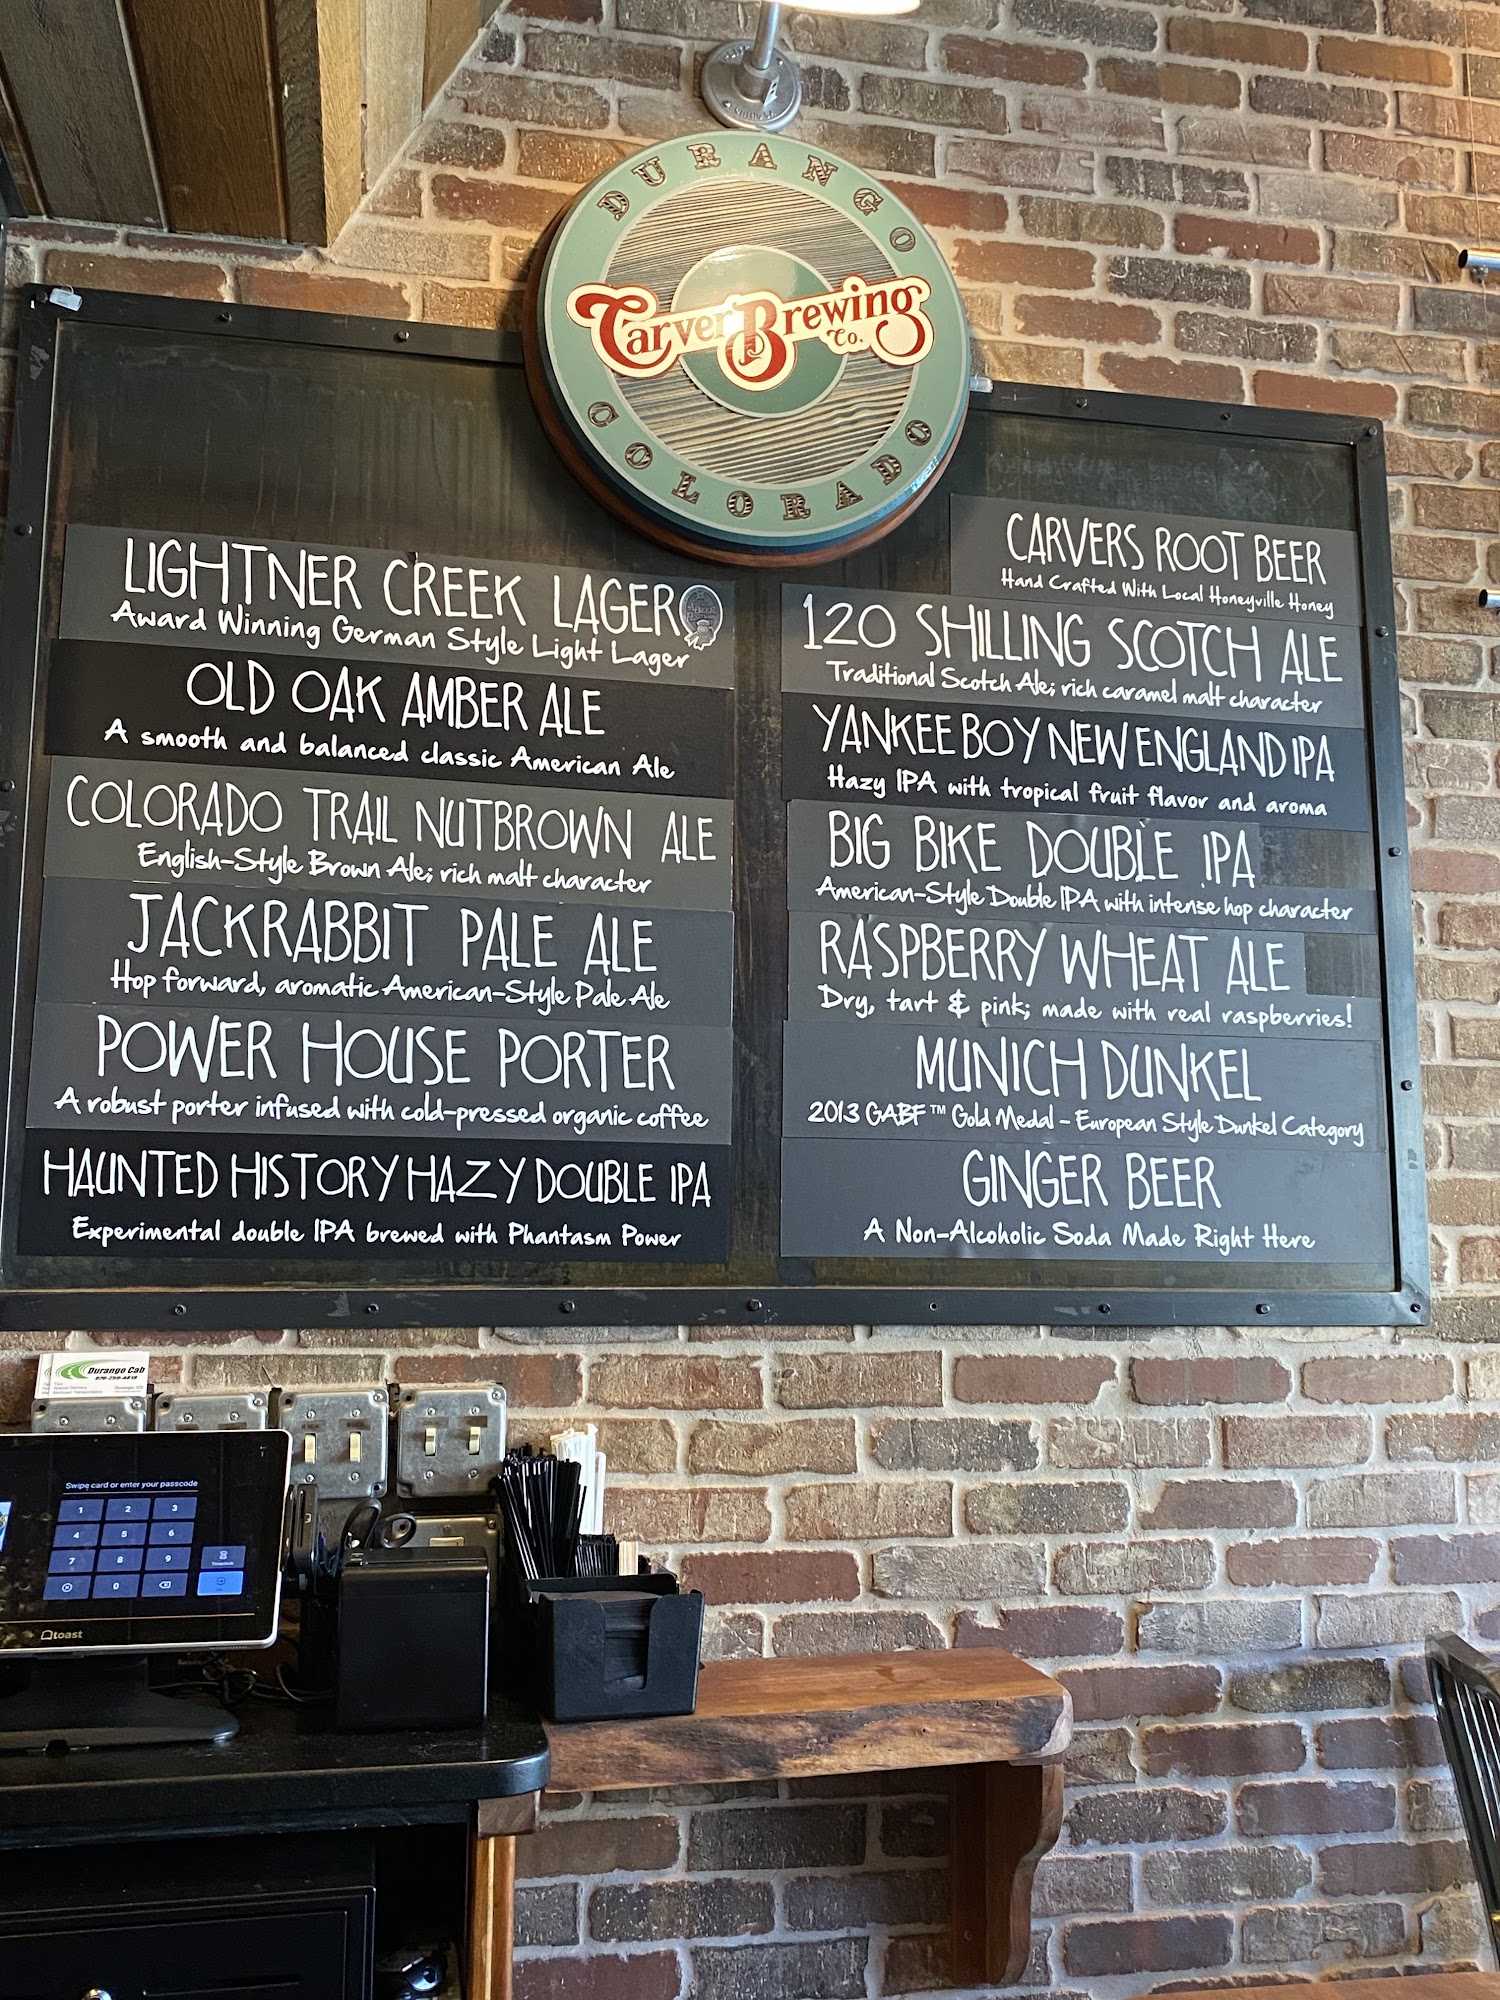 DURANGO
Carver Brewing
Co.
COLORADO
LIGHTNER CREEK LAGER
Award Winning German Style Light Lager
OLD OAK AMBER ALE
A smooth and balanced classic American Ale
COLORADO TRAIL NUTBROWN ALE
English-Style Brown Ale; rich malt character
JACKRABBIT PALE ALE
Hop forward, aromatic American-Style Pale Ale
POWER HOUSE PORTER
A robust porter infused with cold-pressed organic coffee
HAUNTED HISTORY HAZY DOUBLE IPA
Experimental double IPA brewed with Phantasm Power
CARVERS ROOT BEER
Hand Crafted With Local Honeyville Honey
120 SHILLING SCOTCH ALE
Traditional Scotch Ale; rich caramel malt character
YANKEE BOY NEW ENGLAND IPA
Hazy IPA with tropical fruit flavor and aroma
BIG BIKE DOUBLE IPA
American-Style Double IPA with intense hop character
RASPBERRY WHEAT ALE
Dry, tart & pink; made with real raspberries!
MUNICH DUNKEL
2013 GABF™ Gold Medal - European Style Dunkel Category
GINGER BEER
A Non-Alcoholic Soda Made Right Here
Durango Cab
970-259-4818
Swipe card or enter your passcode
1 2 3
4 5 6
7 8 9
0
toast